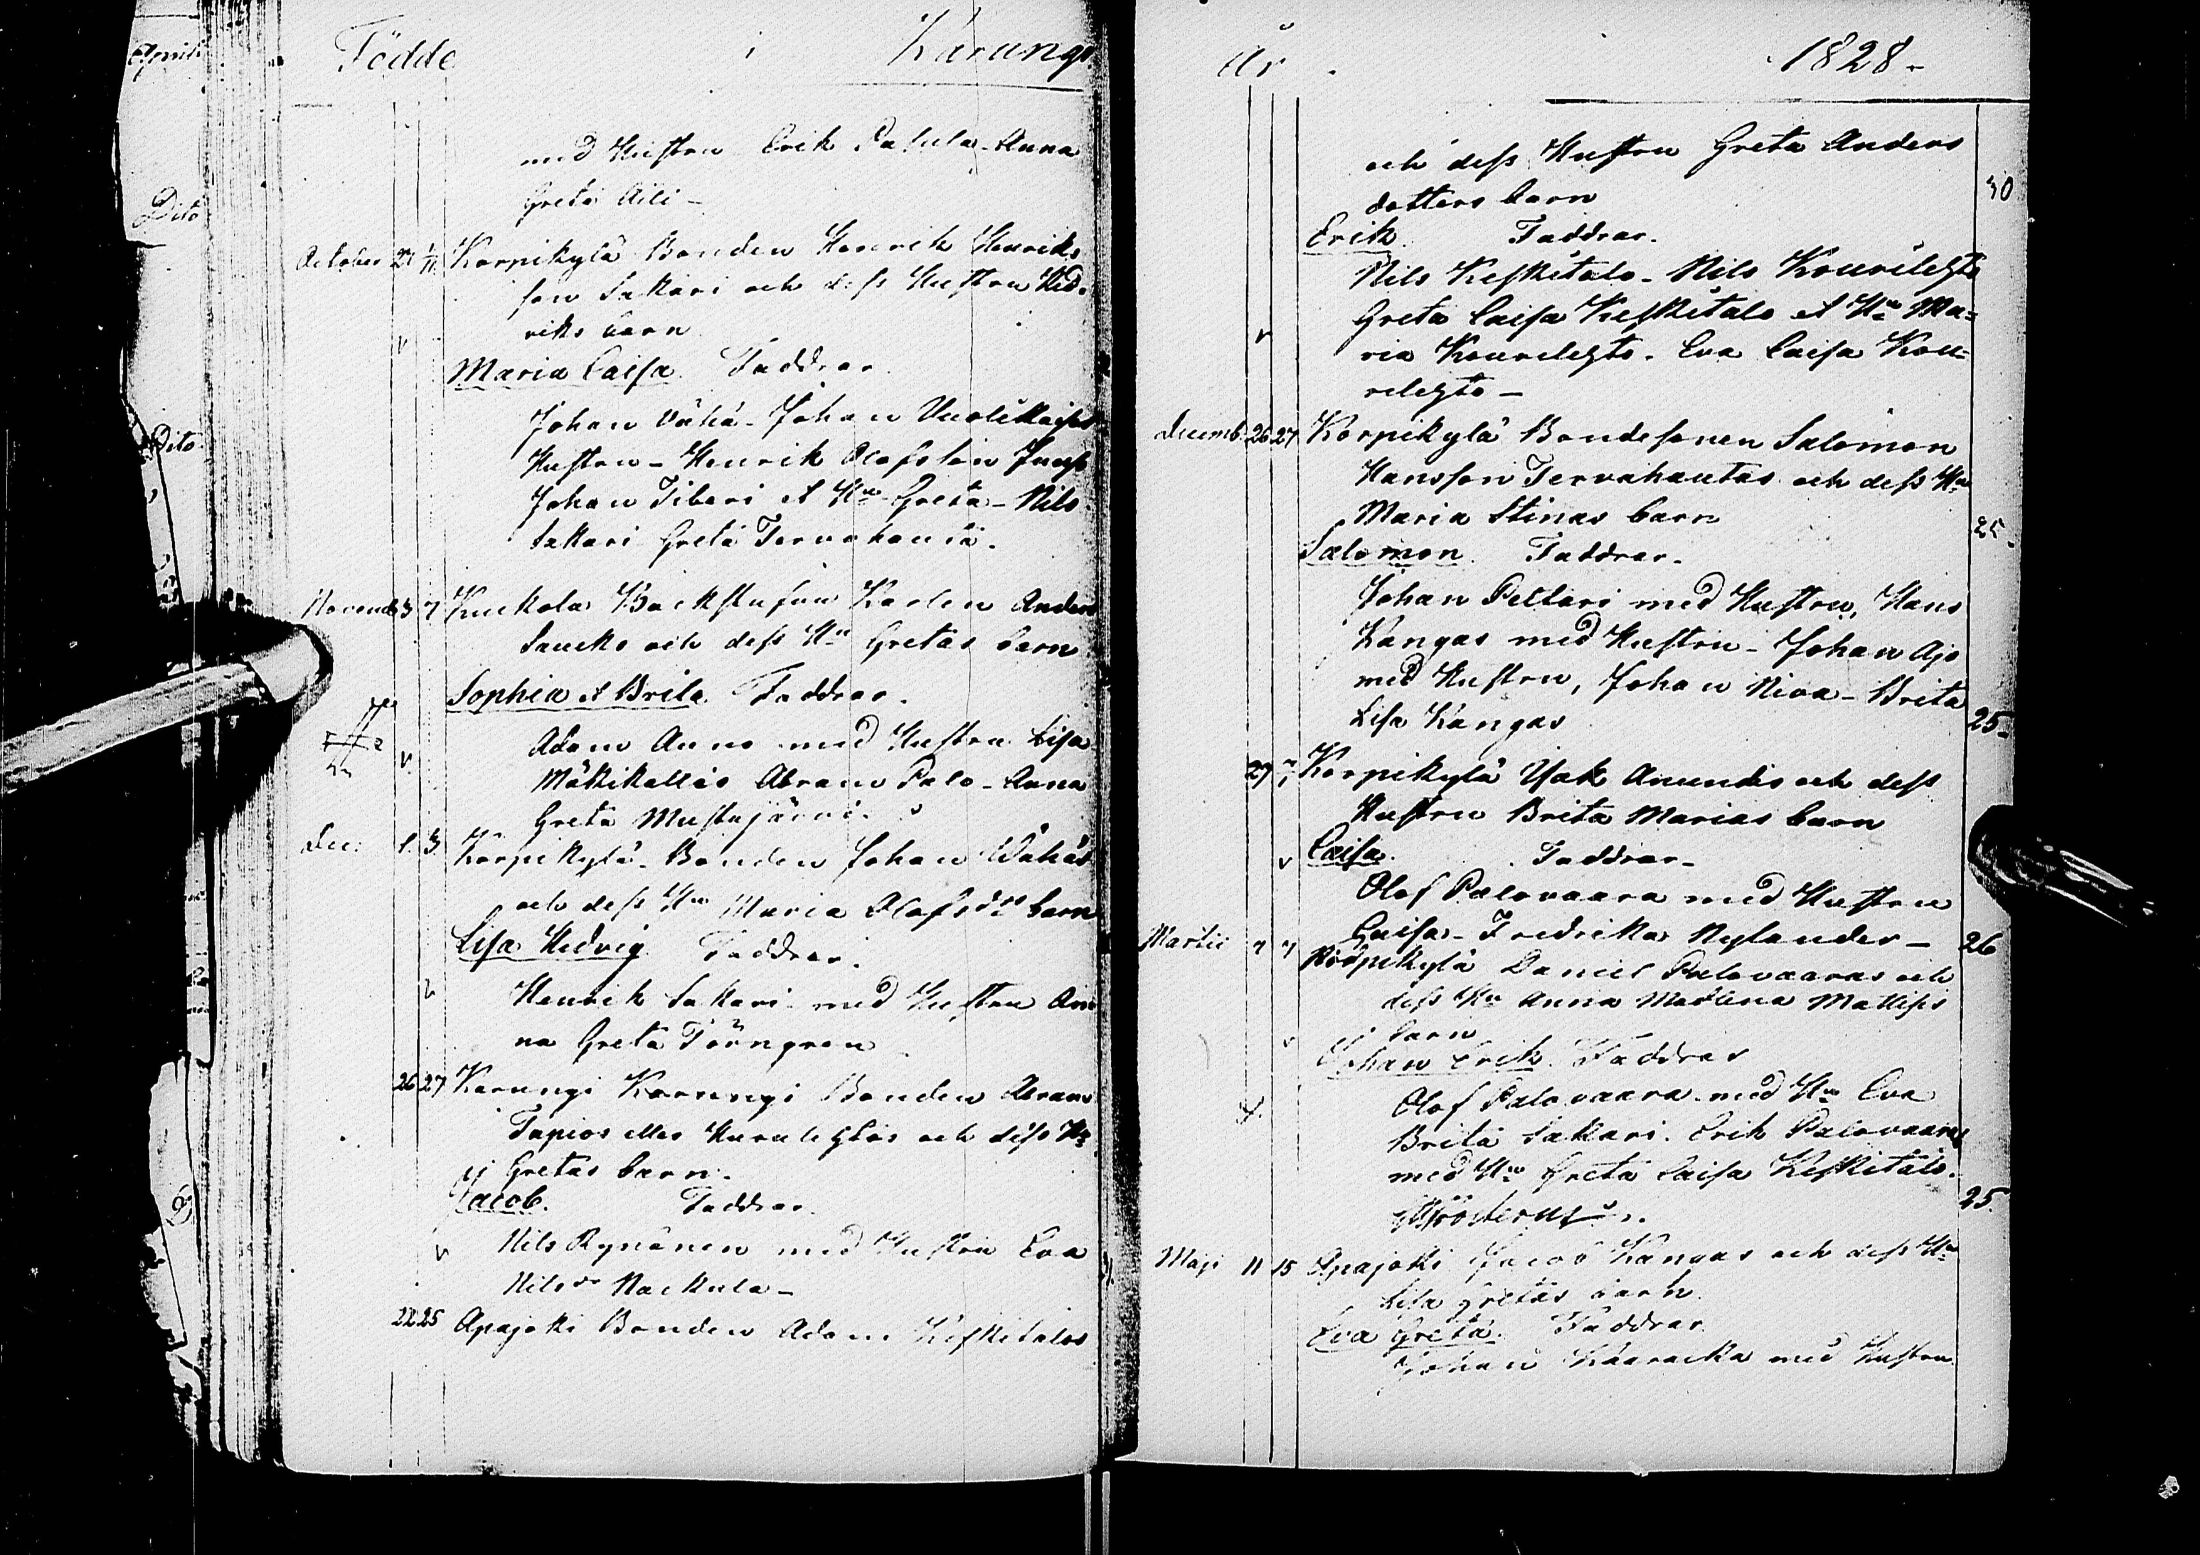 Födde i Karungi
med Hustru Erik Palula Anna
Greta Aili -
October 21 1/11 Korpikylä Bonden Henrik Henriks
son Sakari och dess Hustru Hed-
viks barn
Maria Caisa. Faddrar
Johan Vähä - Johan
Hustru - Henrik Olofsson
Johan Tiberi et Hu Greta - Nils
Sakari Greta Tervahauta.
Novemb 3 7 Kuckola Backstufu Karlen Anders
Saucks och dess Hu Gretas barn
Sophia et Brita. Faddrar.
Adam Anno med Hustru Lisa
Mäkikallio Abram Palo - Anna
Greta Mustajärvi.
Dec: 1. 3. Korpikylä - Bonden Johan Wähäs
och dess Hu Maria Olofsdrs barn
Lisa Hedvig. Faddrar.
Henrik Sakari med Hustru An
na Greta Törngren
26 27 Karungi Karungi Bonden Abram
Tapios eller och dess Hu
Gretas barn.
Jacob. Faddrar.
Nils Rynänen med Hustru Eva
Nilsdr Nackula -
22 25 Apajoki Bonden Adam Keskitalos
År 1828 -
och dess Hustru Greta Anders
dotters barn
30
Erik. Faddrar.
Nils Keskitalo - Nils Kourilehto
Greta Caisa Keskitalo et Hu Ma=
ria Kourilehto. Eva Caisa Kou=
rilehto -
Decemb. 26 27 Korpikylä Bondesonen Salomon
Hansson Tervahautas och dess Hu
Maria Stinas barn
25.
Salomon. Faddrar.
Johan Pellari med Hustru, Hans
Kangas med Hustru - Johan Ajo
med Hustru, Johan Niva - Brita
Lisa Kangas
25-
29 Korpikylä Isak Anundis och dess
Hustru Brita Marias barn
Caisa. Faddrar -
Olof Palovaara med Hustru
Caisa - Fredrika Nylander -
26
Martii 7 7 Korpikylä Daniel Palovaaras och
dess Hu Anna Madlena Mattisis
barn
Johan Erik. Faddrar
Olof Palovaara med Hu Eva
Brita Sakari. Erik Palovaara
med Hu Greta Caisa Keskitalo.
25.
Maji 11 15 Apajoki Jacob Kangas och dess Hu
Lisa Gretas barn.
Eva Greta. Faddrar.
Johan Kaaracka med Hustru